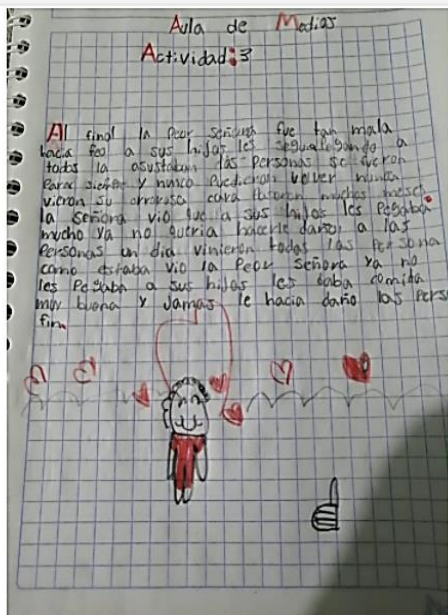 Aula de Medios
Actividad:3
Al final la Peor señora fue tan mala
hacia feo a sus hijos les
todos la asustaban las personas se fueron
Para siempre y nunca Pudieron volver nunca
vieron su cara muchos
la señora vio que a sus hijos les Pegaba
mucho ya no queria hacerle daño a las
Personas un dia vinieron todas las Persona
como estaba vio la Peor señora ya no
les Pegaba a sus hijos les daba comida
muy buena y Jamas le hacia daño las Perso
fin.